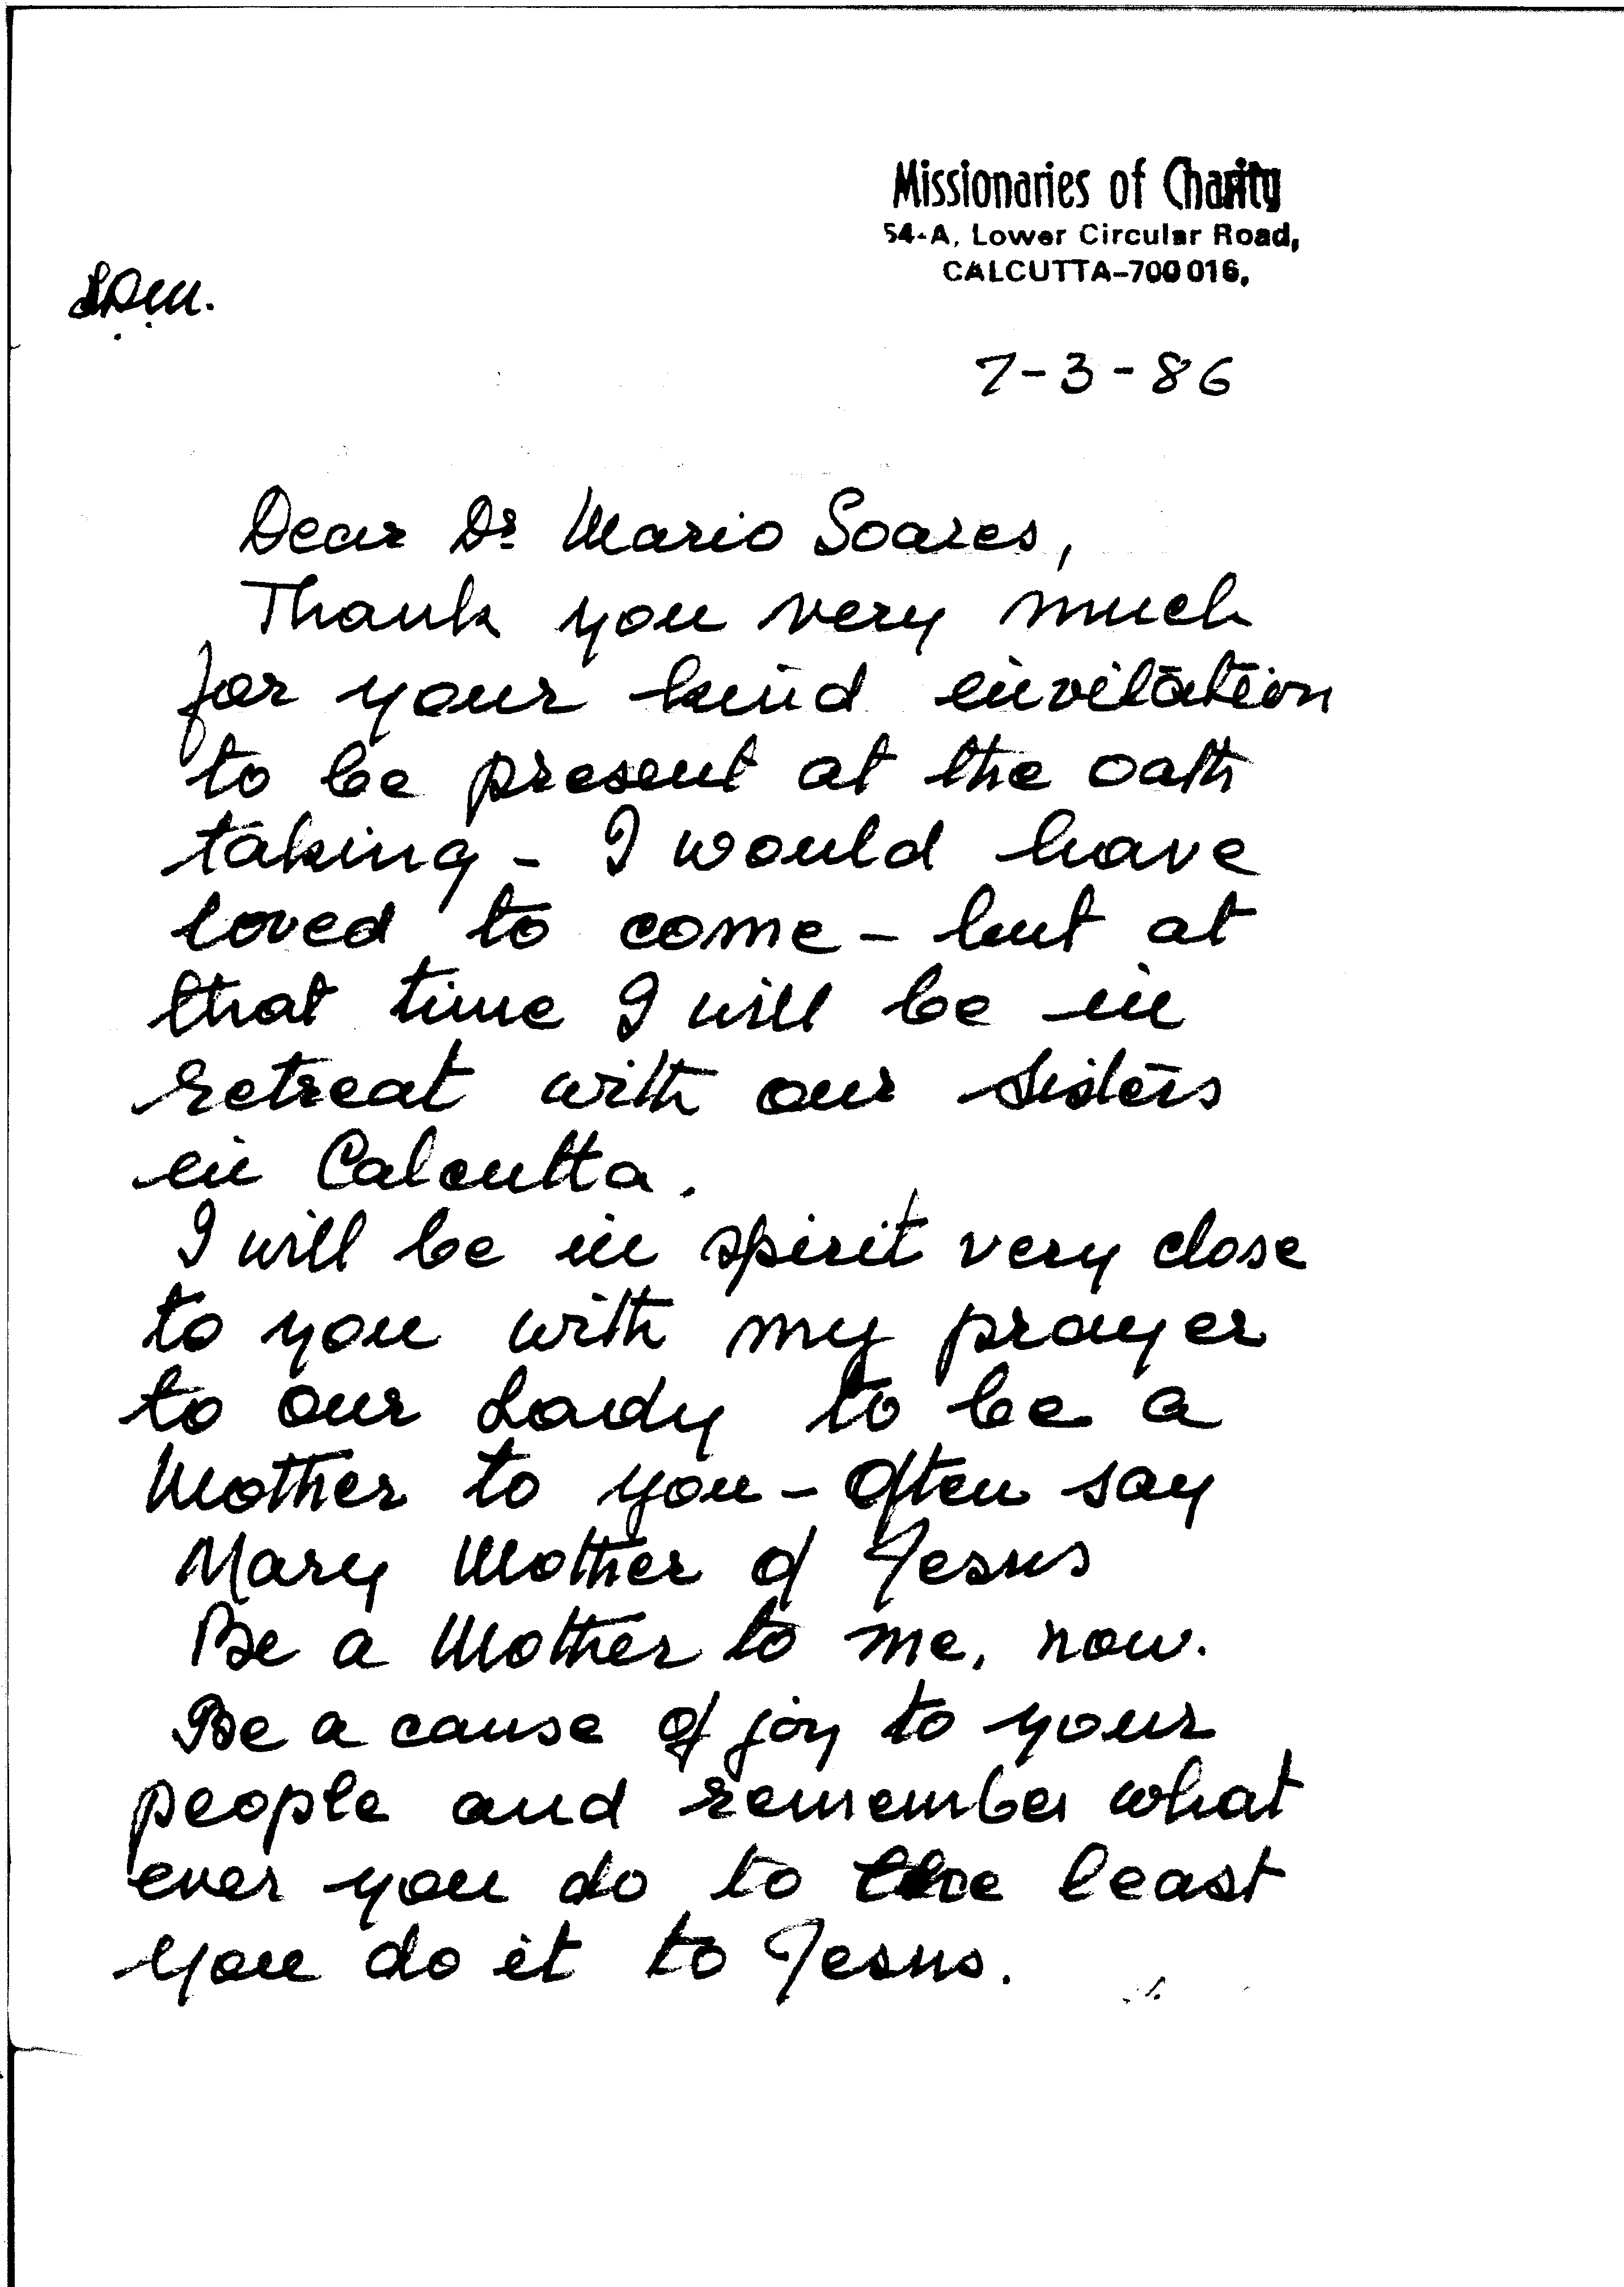 Missionaries of Charity
54-A, Lower Circular Road,
CALCUTTA-700 016,
LDM.
7-3-86
Dear Dr Mario Soares,
Thank you very much
for your kind invitation
to be present at the oath
taking - I would have
loved to come - but at
that time I will be in
retreat with our Sisters
in Calcutta.
I will be in spirit very close
to you with my prayer
to our Lady to be a
Mother to you - Often say
Mary Mother of Jesus
Be a Mother to me, now.
Be a cause of joy to your
people and remember what
ever you do to the least
you do it to Jesus.